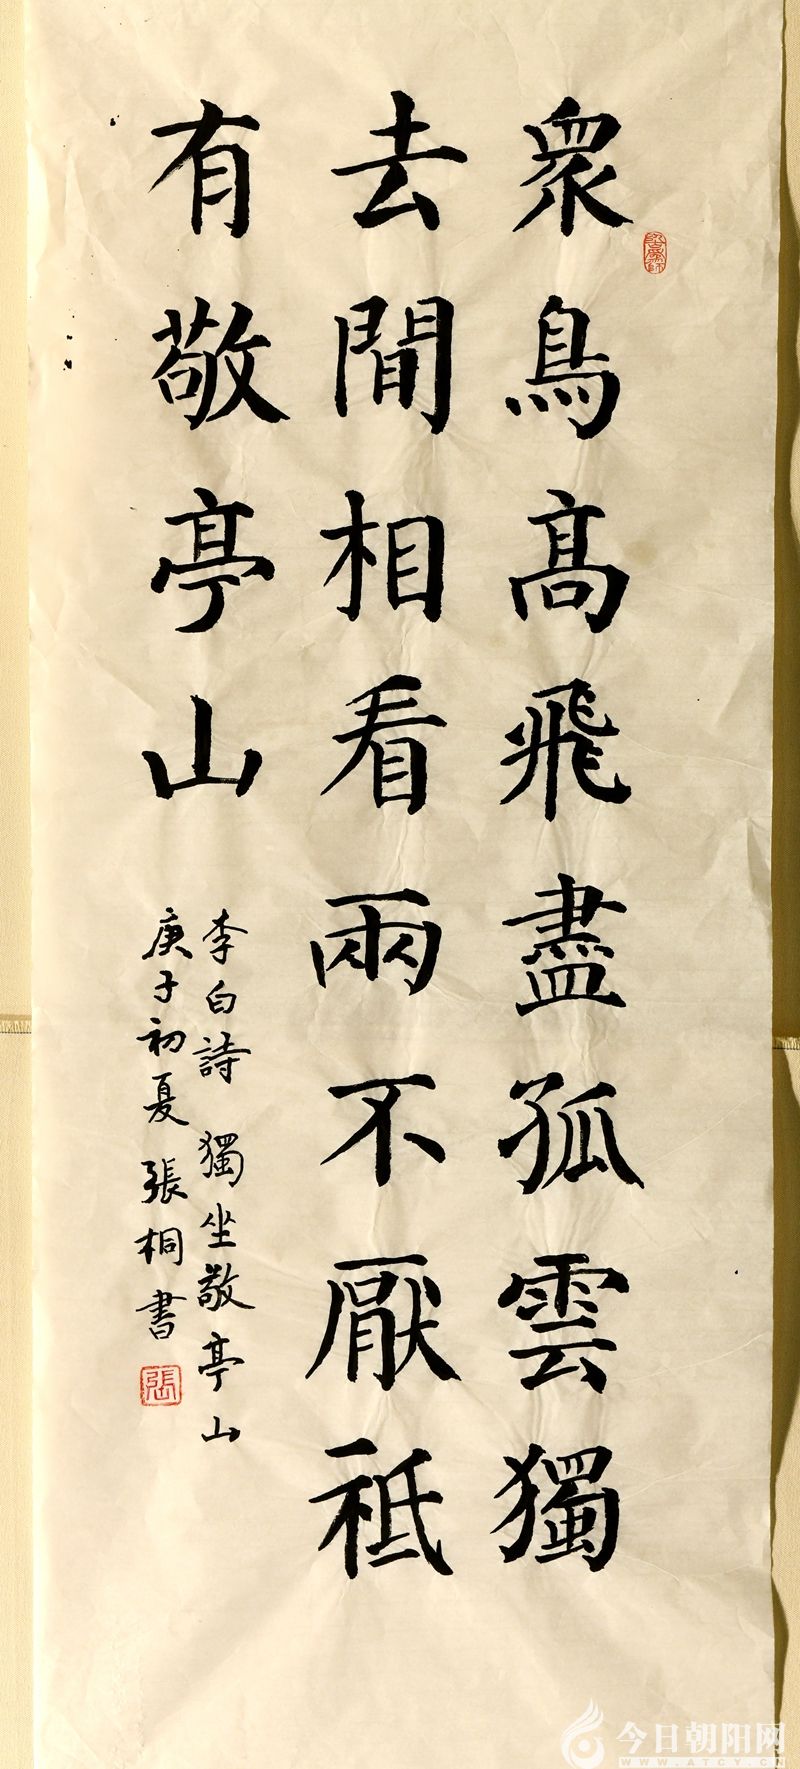 眾鳥高飛盡孤雲獨
去閒相看兩不厭祗
有敬亭山
李白詩 獨坐敬亭山
庚子初夏 張桐書
張
今日朝阳网
WWW.ATCY.CN